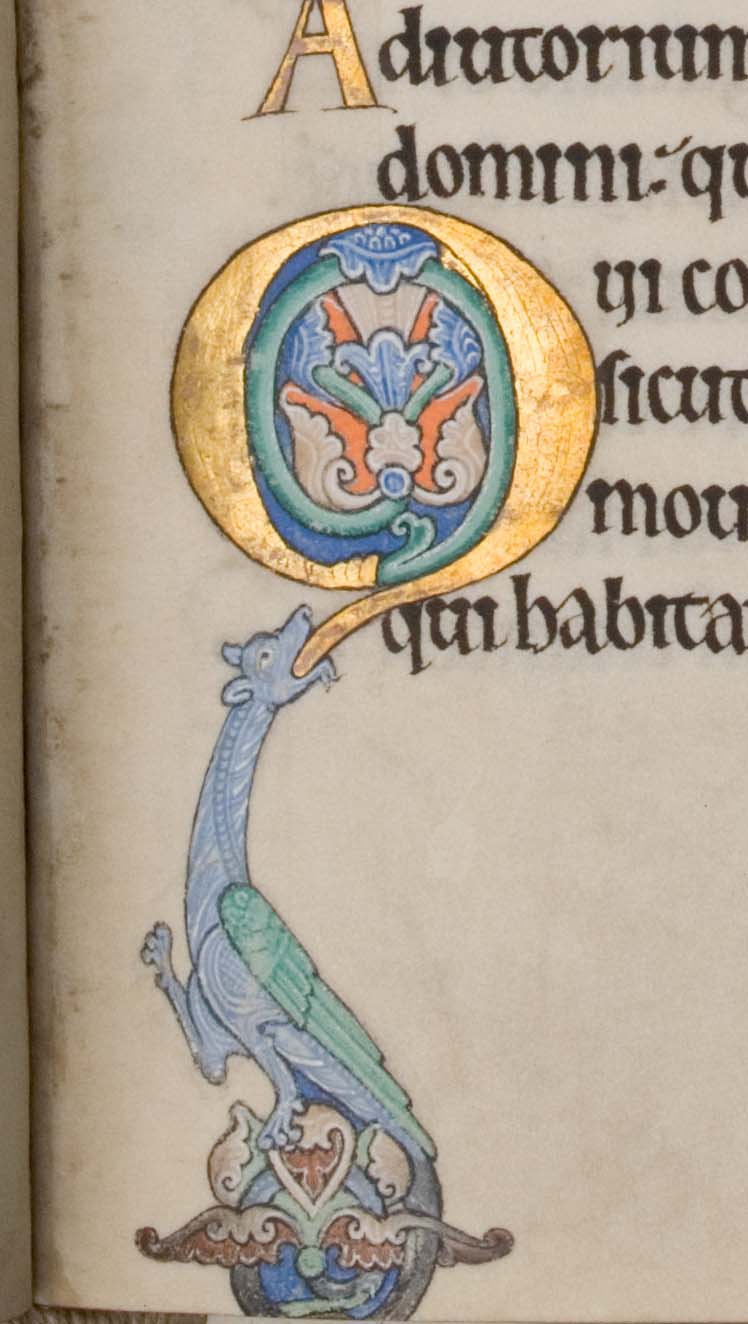 Adiutorium
domini: qu
Qui co
sicut
mou
qui habita